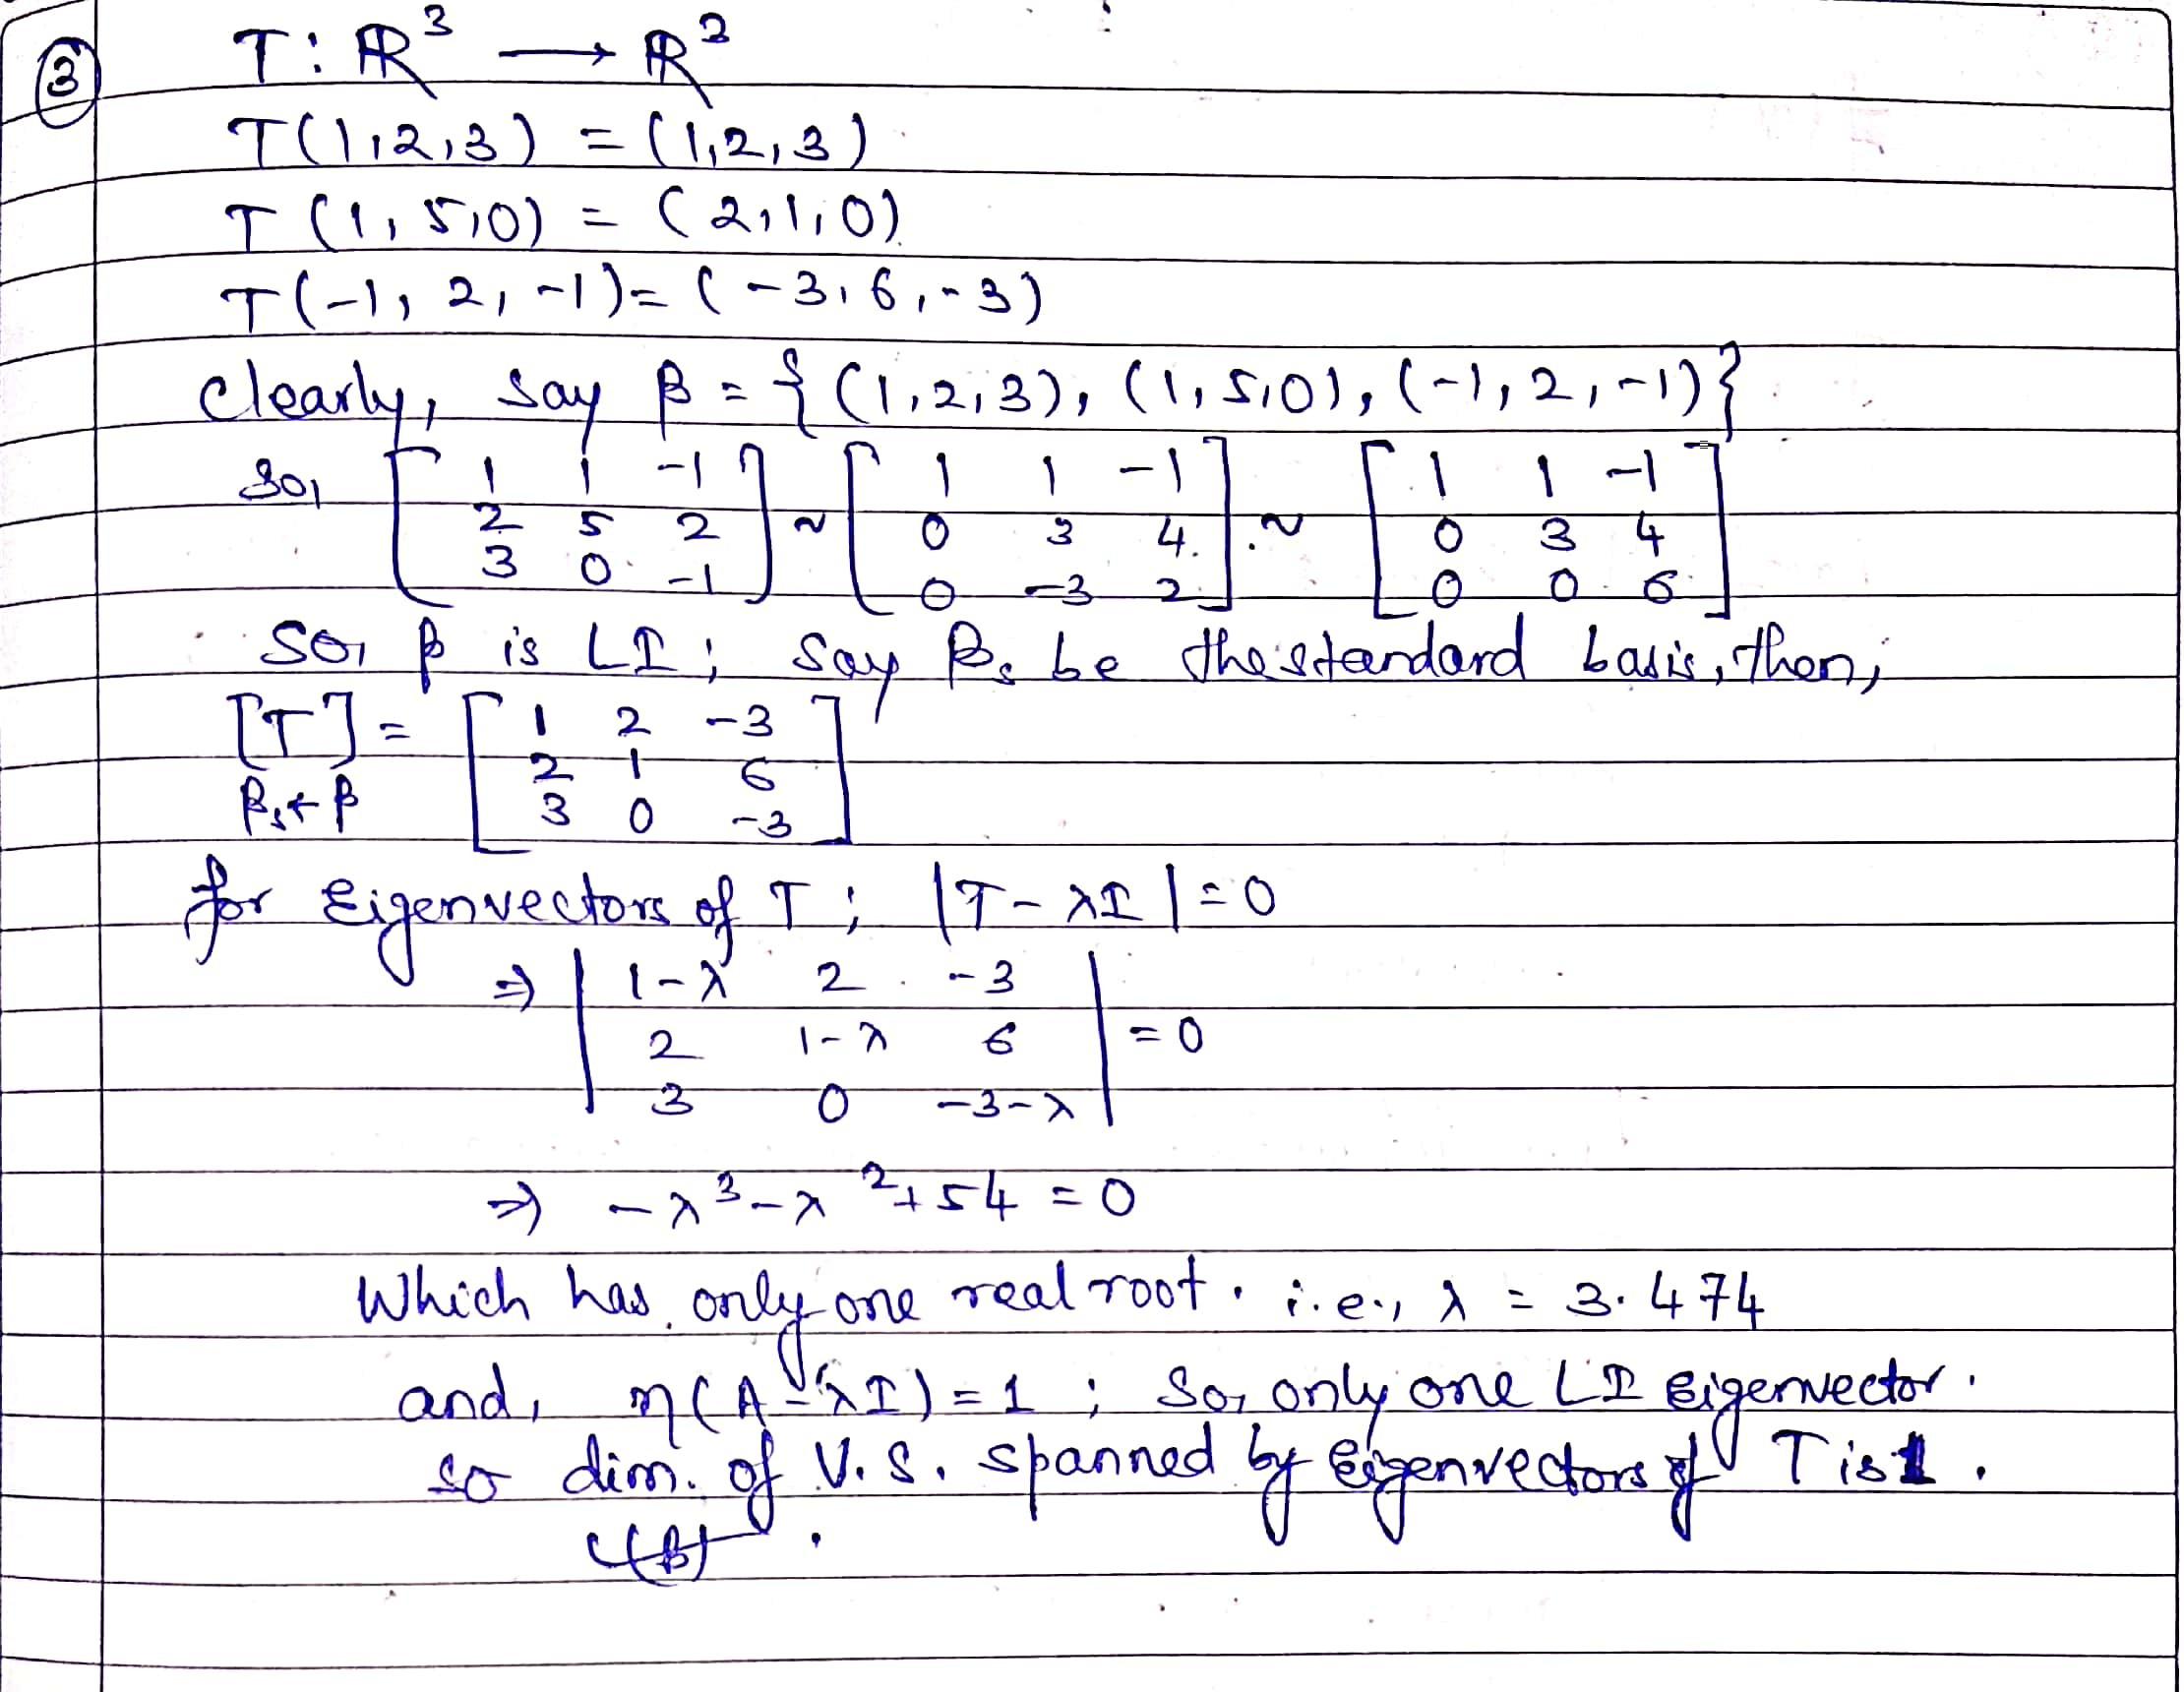 ③ T: ℝ³ → ℝ³
T(1,2,3) = (1,2,3)
T(1,5,0) = (2,1,0)
T(-1, 2, -1) = (-3, 6, -3)
Clearly, say β = {(1,2,3), (1,5,0), (-1, 2, -1)}
So, [1 1 -1; 2 5 2; 3 0 -1] ~ [1 1 -1; 0 3 4; 0 -3 2] ~ [1 1 -1; 0 3 4; 0 0 6]
So, β is LI; say βₛ be the standard basis, then,
[T] βₛ←β = [1 2 -3; 2 1 6; 3 0 -3]
for Eigenvectors of T; |T-λI| = 0
⇒ |1-λ 2 -3; 2 1-λ 6; 3 0 -3-λ| = 0
⇒ -λ³-λ²+54 = 0
Which has only one real root. i.e., λ = 3.474
and, η(A-λI) = 1; So, only one LI Eigenvector.
so dim. of V.S. spanned by Eigenvectors of T is 1.
(B).